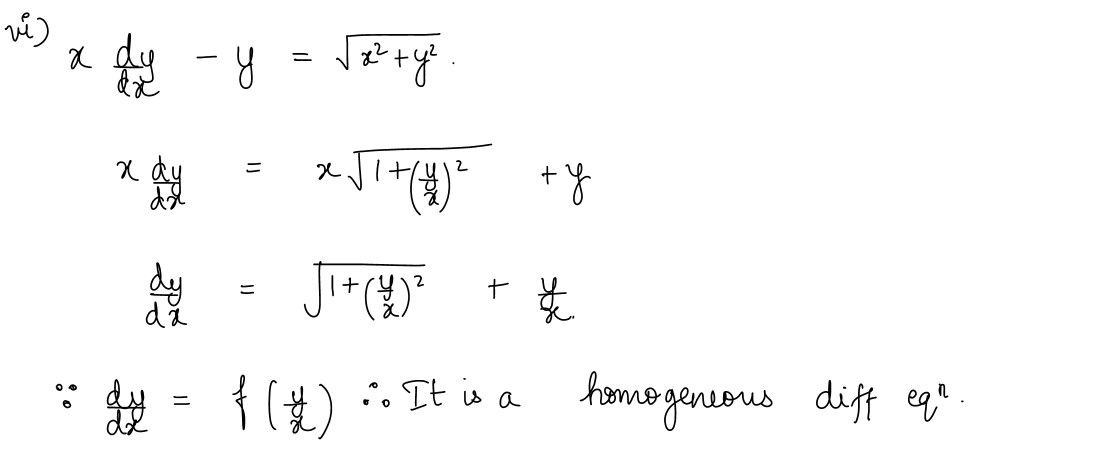 vi) x dy/dx - y = √(x² + y²).
x dy/dx = x √(1 + (y/x)²) + y
dy/dx = √(1 + (y/x)²) + y/x.
∵ dy/dx = f (y/x) ∴ It is a homogeneous diff eqⁿ.